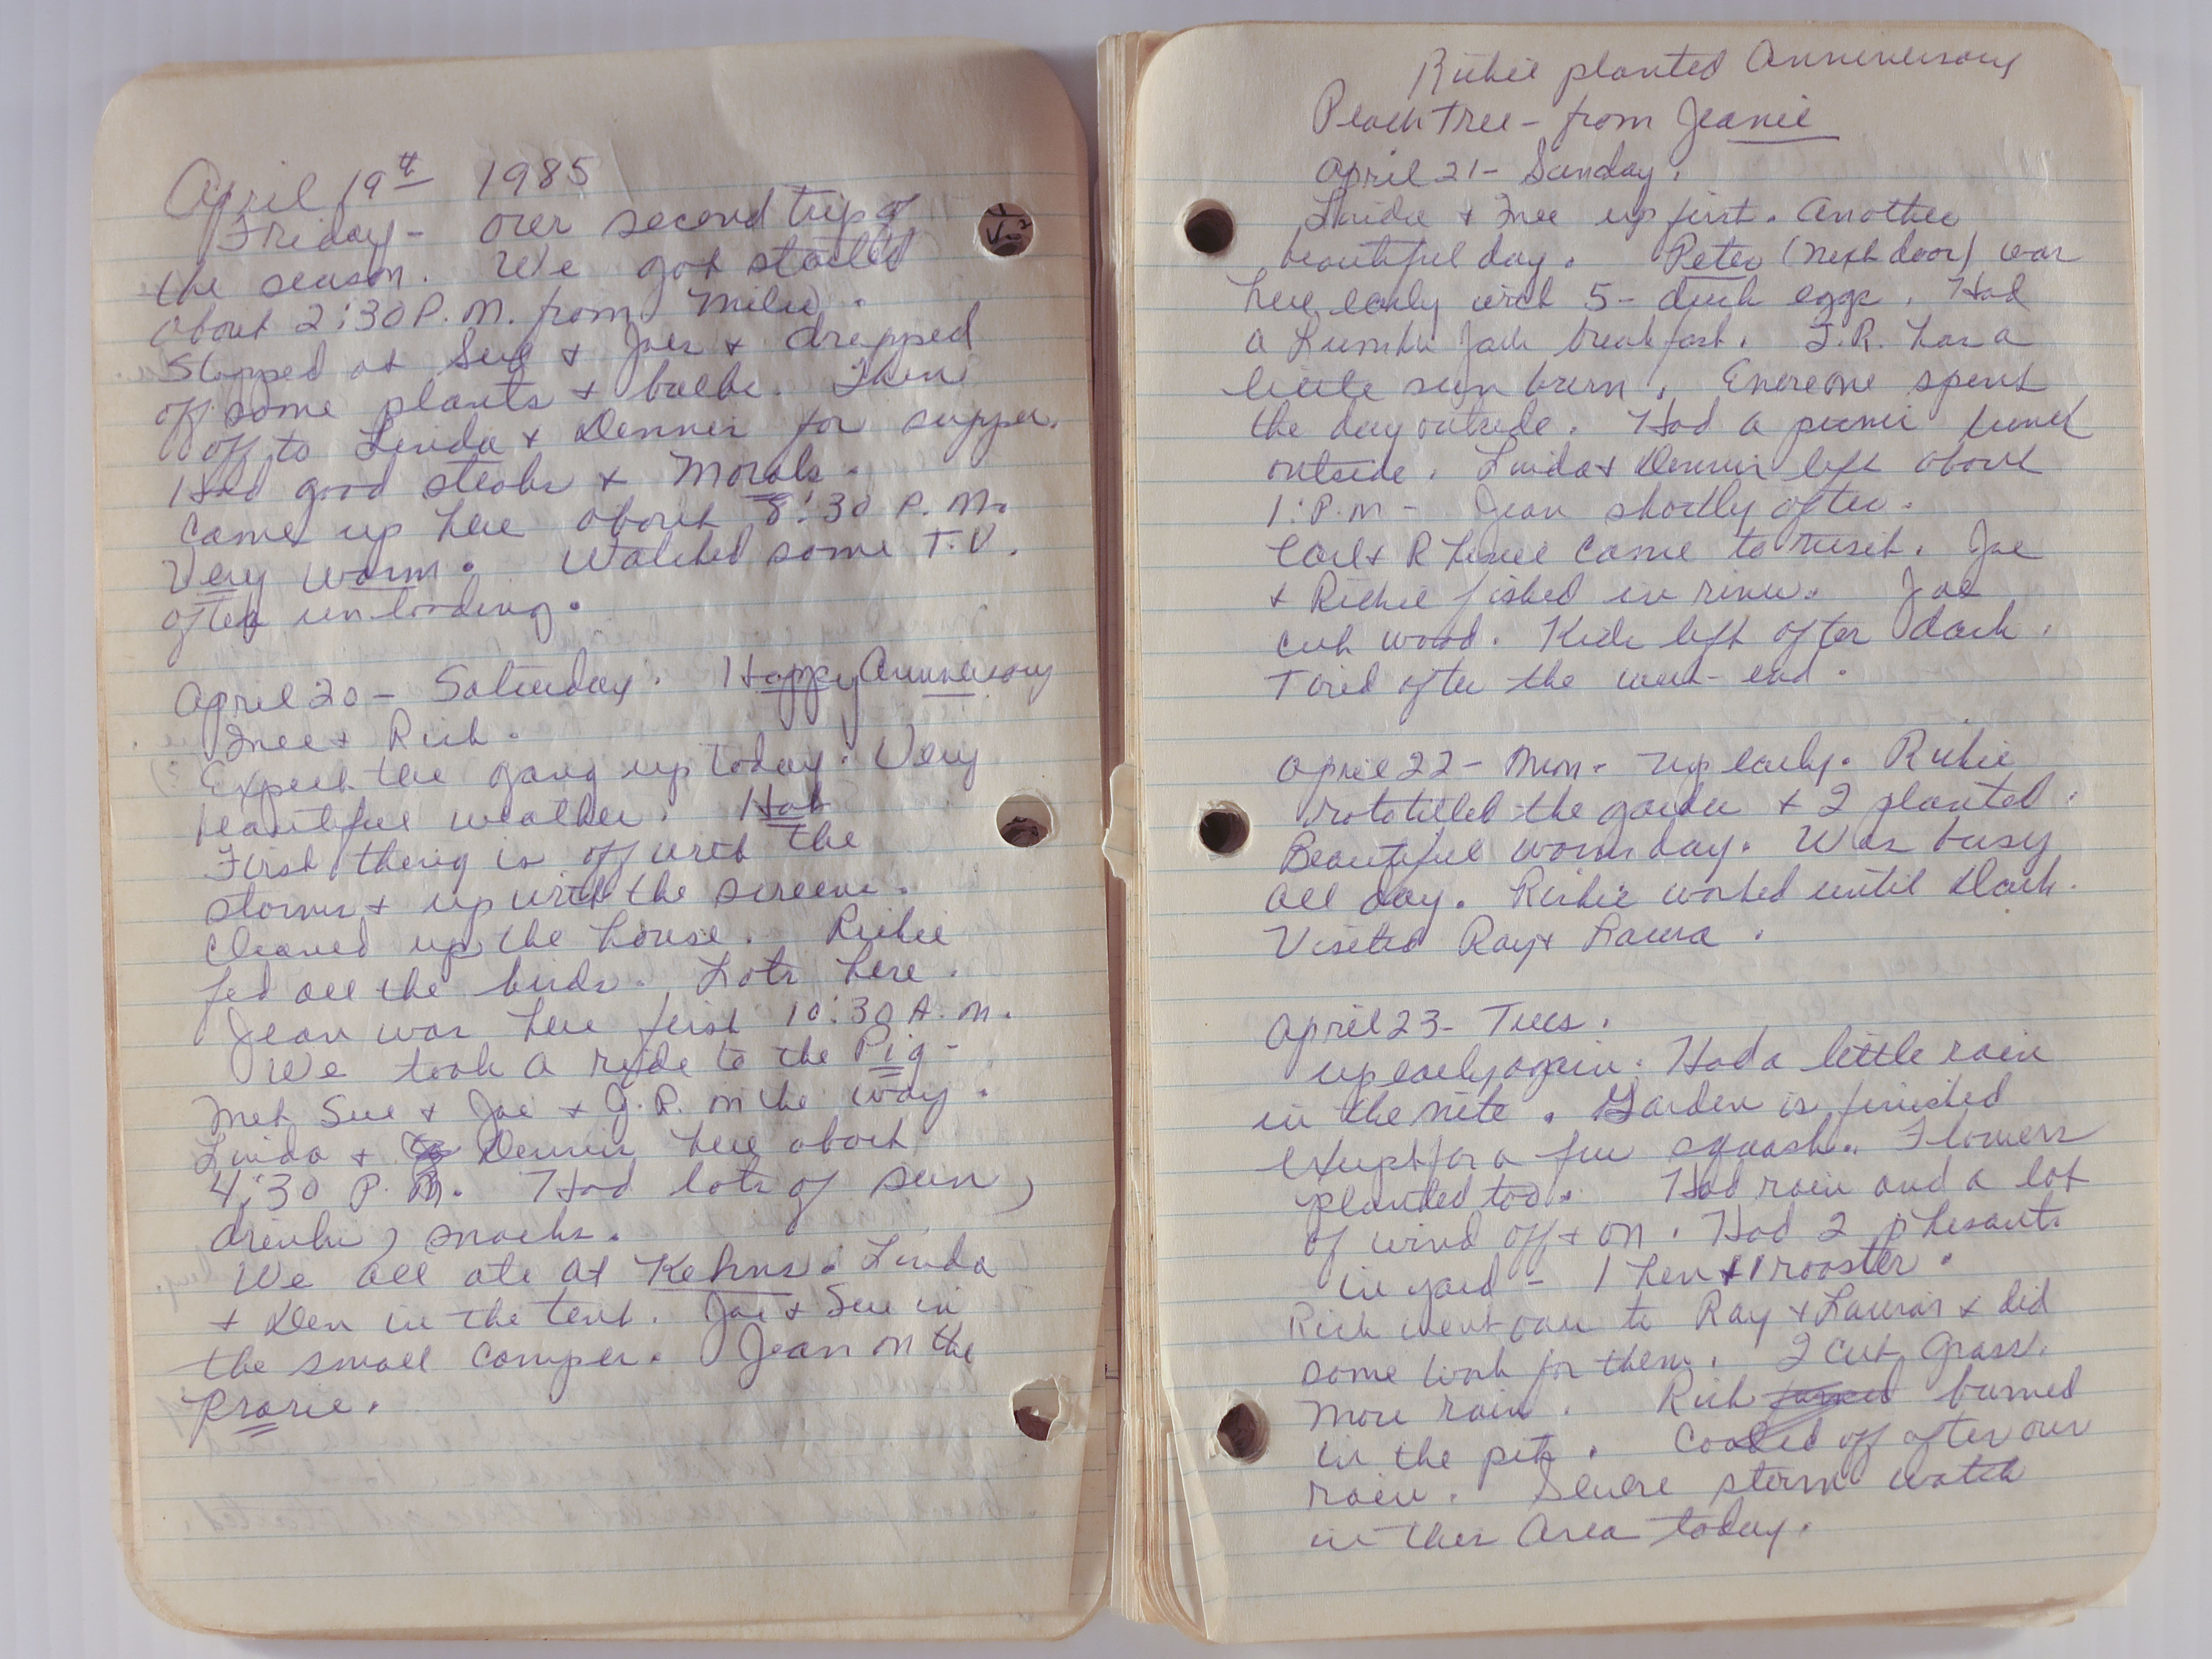 April 19th 1985
Friday - our second trip of
the season. We got started
about 2:30 P.M. from Milw.
Stopped at Sue & Joes & dropped
off some plants & bulbs. Then
off to Linda & Dennis for supper.
Had good steaks & Morals.
Came up here about 8:30 P.M.
Very warm. Watched some T.V.
after unloading.
April 20 - Saturday. Happy Anniversary
Mee & Rich.
Expect the gang up today. Very
beautiful weather. Hot
First thing is off with the
storms & up with the screens.
Cleaned up the house. Richie
fed all the birds. Lots here.
Jean was here first 10:30 A.M.
We took a ride to the Pig -
Met Sue & Joe & J.R. on the way.
Linda & Dennis here about
4:30 P.M. Had lots of sun,
drinks, snacks.
We all ate at Kehns. Linda
& Den in the tent. Joe & Sue in
the small camper. Jean on the
Prarie.
Richie planted Anniversary
Peach Tree - from Jeanie
April 21 - Sunday.
Linda & Mee up first. Another
beautiful day. Peter (next door) was
here early with 5 - duck eggs. Had
a Lumber Jack breakfast. J.R. has a
little sun burn. Everone spent
the day outside. Had a picnic lunch
outside. Linda & Dennis left about
1:P.M - Jean shortly after.
Carl & Rhenee came to visit. Joe
& Richie fished in river. Joe
cut wood. Kids left after dark.
Tired after the week-end.
April 22 - Mon. Up early. Richie
rototilled the garden & I planted.
Beautiful warm day. Was busy
all day. Richie worked until Dark.
Visited Ray & Laura.
April 23 - Tues.
up early again. Had a little rain
in the nite. Garden is finished
except for a few squash. Flowers
planted too. Had rain and a lot
of wind off & on. Had 2 phesants
in yard - 1 hen & 1 rooster.
Rich went over to Ray & Laura's & did
some work for them. I cut grass.
More rain. Rich burned
in the pit. Cooled off after our
rain. Severe storm watch
in this area today.